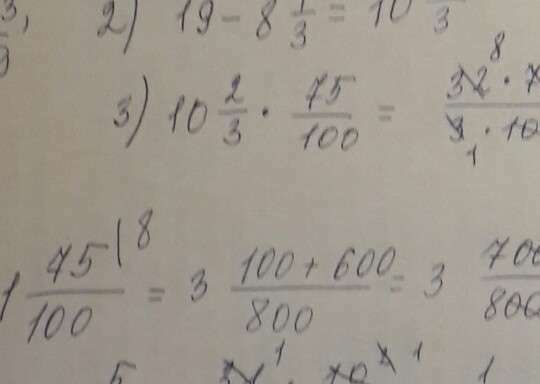 3, 2) 19 - 8 1/3 = 10 /3
9
3) 10 2/3 · 75/100 = 32 8 · 7 / 3 1 · 10
1 75/100 |8 = 3 100 + 600/800 = 3 700/800
5 1 10 1 1